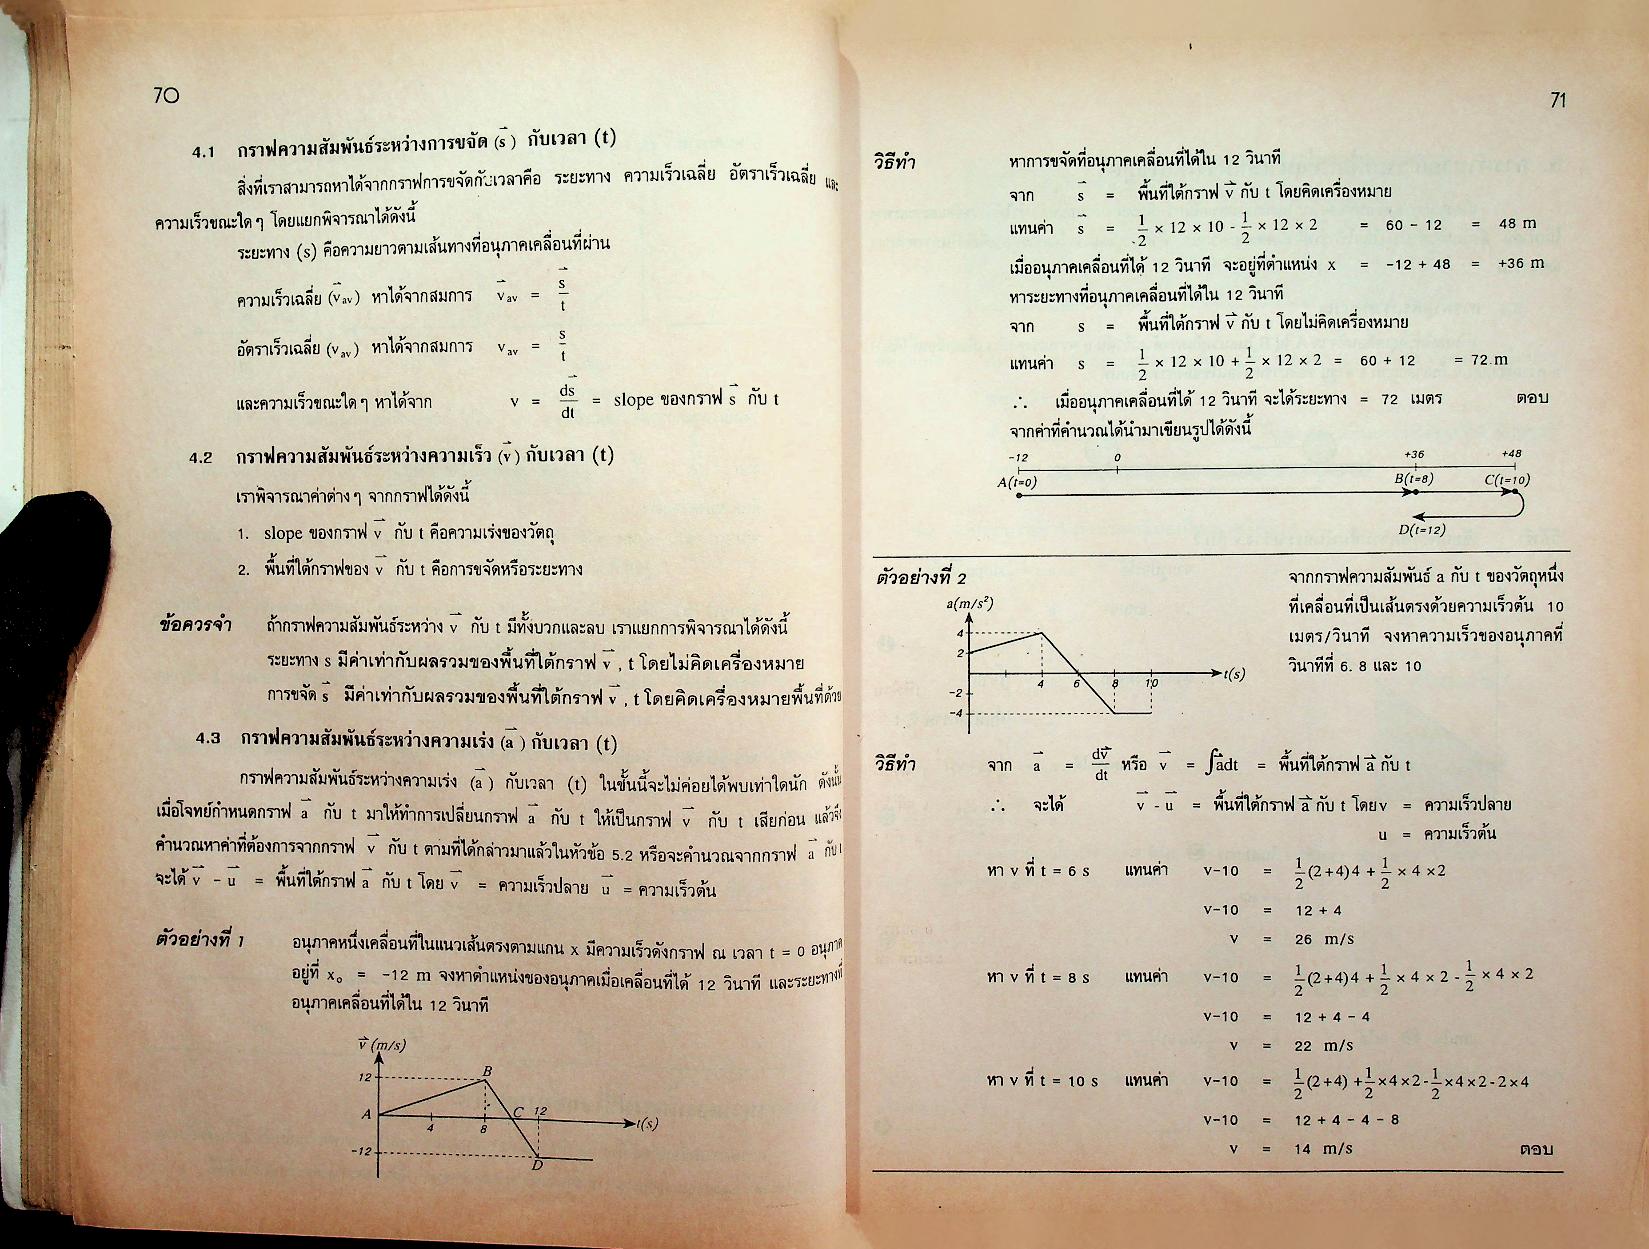 70
4.1 กราฟความสัมพันธ์ระหว่างการขจัด (s⃗) กับเวลา (t)
สิ่งที่เราสามารถหาได้จากกราฟการขจัดกับเวลาคือ ระยะทาง ความเร็วเฉลี่ย อัตราเร็วเฉลี่ย และ
ความเร็วขณะใดๆ โดยแยกพิจารณาได้ดังนี้
ระยะทาง (s) คือความยาวตามเส้นทางที่อนุภาคเคลื่อนที่ผ่าน
ความเร็วเฉลี่ย (v⃗av) หาได้จากสมการ v⃗av = s⃗/t
อัตราเร็วเฉลี่ย (vav) หาได้จากสมการ vav = s/t
และความเร็วขณะใดๆ หาได้จาก v = ds⃗/dt = slope ของกราฟ s⃗ กับ t
4.2 กราฟความสัมพันธ์ระหว่างความเร็ว (v⃗) กับเวลา (t)
เราพิจารณาค่าต่างๆ จากกราฟได้ดังนี้
1. slope ของกราฟ v⃗ กับ t คือความเร่งของวัตถุ
2. พื้นที่ใต้กราฟของ v⃗ กับ t คือการขจัดหรือระยะทาง
ข้อควรจำ ถ้ากราฟความสัมพันธ์ระหว่าง v⃗ กับ t มีทั้งบวกและลบ เราแยกการพิจารณาได้ดังนี้
ระยะทาง s มีค่าเท่ากับผลรวมของพื้นที่ใต้กราฟ v⃗, t โดยไม่คิดเครื่องหมาย
การขจัด s⃗ มีค่าเท่ากับผลรวมของพื้นที่ใต้กราฟ v⃗, t โดยคิดเครื่องหมายพื้นที่ด้วย
4.3 กราฟความสัมพันธ์ระหว่างความเร่ง (a⃗) กับเวลา (t)
กราฟความสัมพันธ์ระหว่างความเร่ง (a⃗) กับเวลา (t) ในชั้นนี้จะไม่ค่อยได้พบเท่าใดนัก ดังนั้น
เมื่อโจทย์กำหนดกราฟ a⃗ กับ t มาให้ทำการเปลี่ยนกราฟ a⃗ กับ t ให้เป็นกราฟ v⃗ กับ t เสียก่อน แล้วจึง
คำนวณหาค่าที่ต้องการจากกราฟ v⃗ กับ t ตามที่ได้กล่าวมาแล้วในหัวข้อ 5.2 หรือจะคำนวณจากกราฟ a⃗ กับ t
จะได้ v⃗ - u⃗ = พื้นที่ใต้กราฟ a⃗ กับ t โดย v⃗ = ความเร็วปลาย u⃗ = ความเร็วต้น
ตัวอย่างที่ 1 อนุภาคหนึ่งเคลื่อนที่ในแนวเส้นตรงตามแกน x มีความเร็วดังกราฟ ณ เวลา t = 0 อนุภาค
อยู่ที่ x₀ = -12 m จงหาตำแหน่งของอนุภาคเมื่อเคลื่อนที่ได้ 12 วินาที และระยะทางที่
อนุภาคเคลื่อนที่ได้ใน 12 วินาที
v⃗ (m/s)
12 B
A C 12 t(s)
4 8
-12 D
71
วิธีทำ หาการขจัดที่อนุภาคเคลื่อนที่ได้ใน 12 วินาที
จาก s⃗ = พื้นที่ใต้กราฟ v⃗ กับ t โดยคิดเครื่องหมาย
แทนค่า s⃗ = 1/2 × 12 × 10 - 1/2 × 12 × 2 = 60 - 12 = 48 m
เมื่ออนุภาคเคลื่อนที่ได้ 12 วินาที จะอยู่ที่ตำแหน่ง x = -12 + 48 = +36 m
หาระยะทางที่อนุภาคเคลื่อนที่ได้ใน 12 วินาที
จาก s = พื้นที่ใต้กราฟ v⃗ กับ t โดยไม่คิดเครื่องหมาย
แทนค่า s = 1/2 × 12 × 10 + 1/2 × 12 × 2 = 60 + 12 = 72 m
∴ เมื่ออนุภาคเคลื่อนที่ได้ 12 วินาที จะได้ระยะทาง = 72 เมตร ตอบ
จากค่าที่คำนวณได้นำมาเขียนรูปได้ดังนี้
-12 0 +36 +48
A(t=0) B(t=8) C(t=10)
D(t=12)
ตัวอย่างที่ 2 จากกราฟความสัมพันธ์ a กับ t ของวัตถุหนึ่ง
ที่เคลื่อนที่เป็นเส้นตรงด้วยความเร็วต้น 10
เมตร/วินาที จงหาความเร็วของอนุภาคที่
วินาทีที่ 6, 8 และ 10
a(m/s²)
4
2
4 6 8 10 t(s)
-2
-4
วิธีทำ จาก a⃗ = dv⃗/dt หรือ v⃗ = ∫a⃗dt = พื้นที่ใต้กราฟ a⃗ กับ t
∴ จะได้ v⃗ - u⃗ = พื้นที่ใต้กราฟ a⃗ กับ t โดย v = ความเร็วปลาย
u = ความเร็วต้น
หา v ที่ t = 6 s แทนค่า v-10 = 1/2(2+4)4 + 1/2 × 4 × 2
v-10 = 12 + 4
v = 26 m/s
หา v ที่ t = 8 s แทนค่า v-10 = 1/2(2+4)4 + 1/2 × 4 × 2 - 1/2 × 4 × 2
v-10 = 12 + 4 - 4
v = 22 m/s
หา v ที่ t = 10 s แทนค่า v-10 = 1/2(2+4) + 1/2×4×2 - 1/2×4×2 - 2×4
v-10 = 12 + 4 - 4 - 8
v = 14 m/s ตอบ